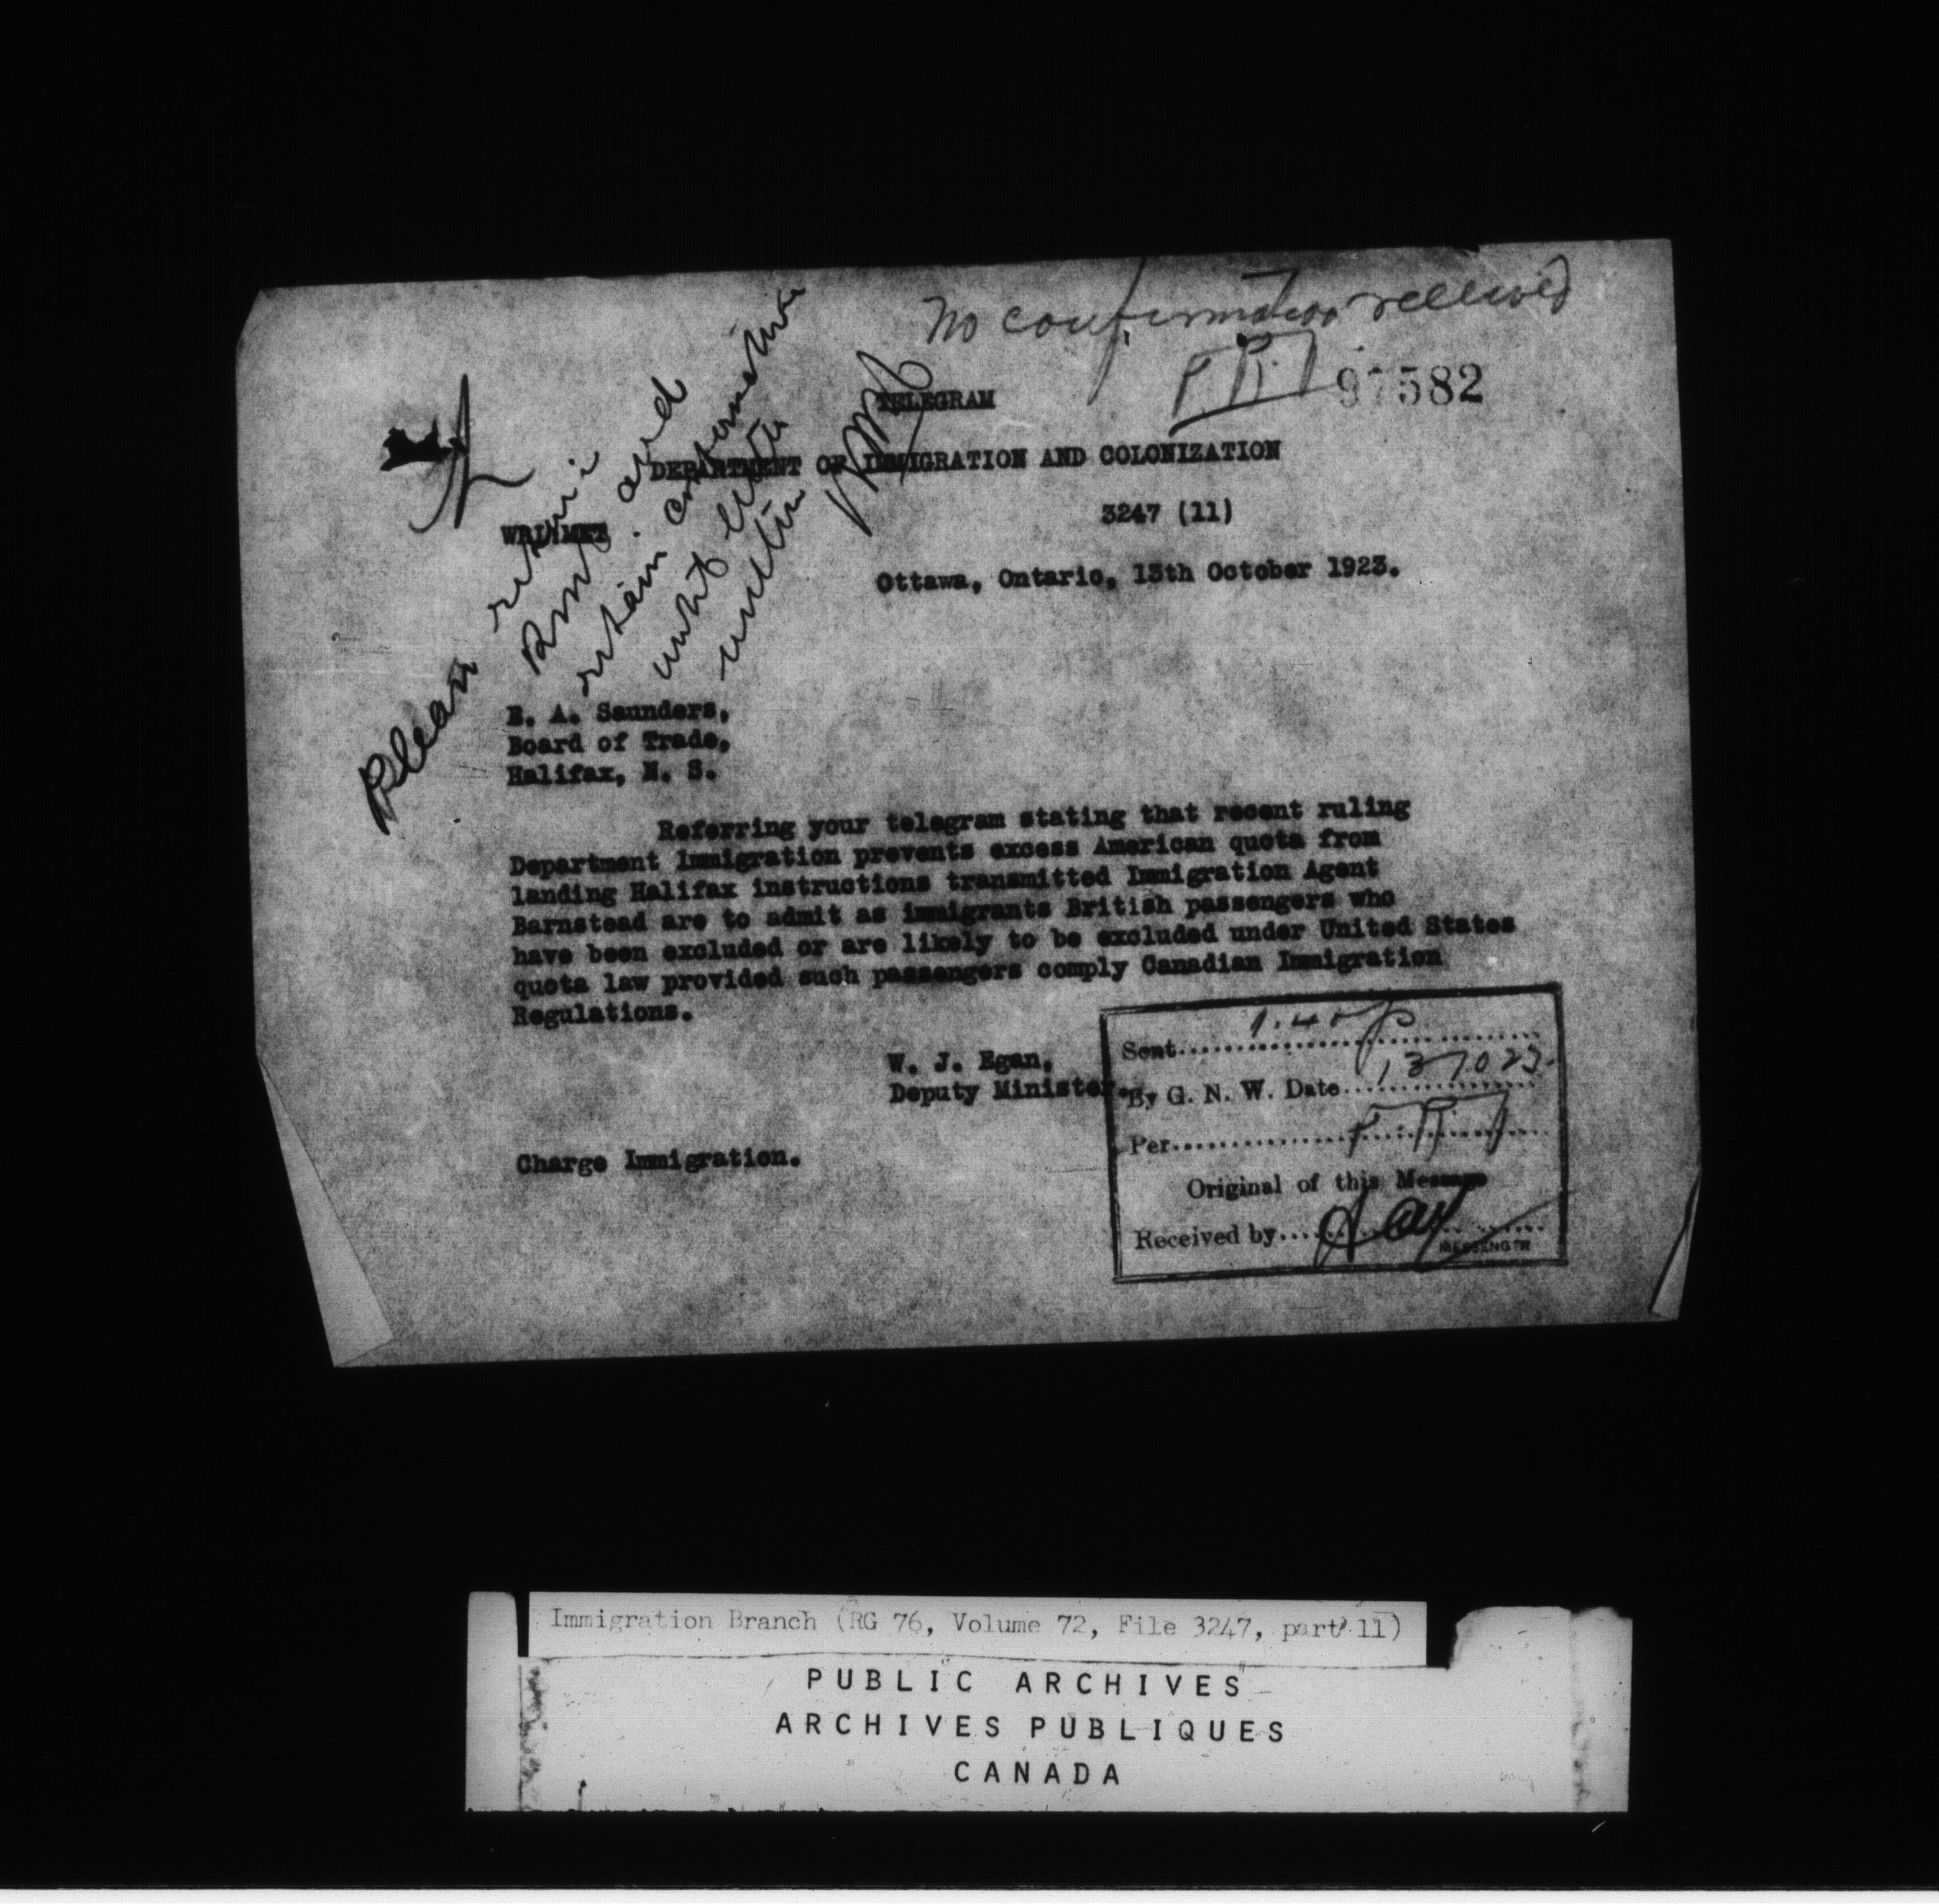 No confirmation received
97582
TELEGRAM
DEPARTMENT OF IMMIGRATION AND COLONIZATION
3247 (11)
Ottawa, Ontario, 13th October 1923.
Please
and
retain confirmation
until
E. A. Saunders,
Board of Trade,
Halifax, N. S.
Referring your telegram stating that recent ruling
Department Immigration prevents excess American quota from
landing Halifax instructions transmitted Immigration Agent
Barnstead are to admit as immigrants British passengers who
have been excluded or are likely to be excluded under United States
quota law provided such passengers comply Canadian Immigration
Regulations.
W. J. Egan,
Deputy Minister.
Charge Immigration.
Sent
By G. N. W. Date
Per
Original of this Message
Received by
MESSENGER
Immigration Branch (RG 76, Volume 72, File 3247, part 11)
PUBLIC ARCHIVES
ARCHIVES PUBLIQUES
CANADA